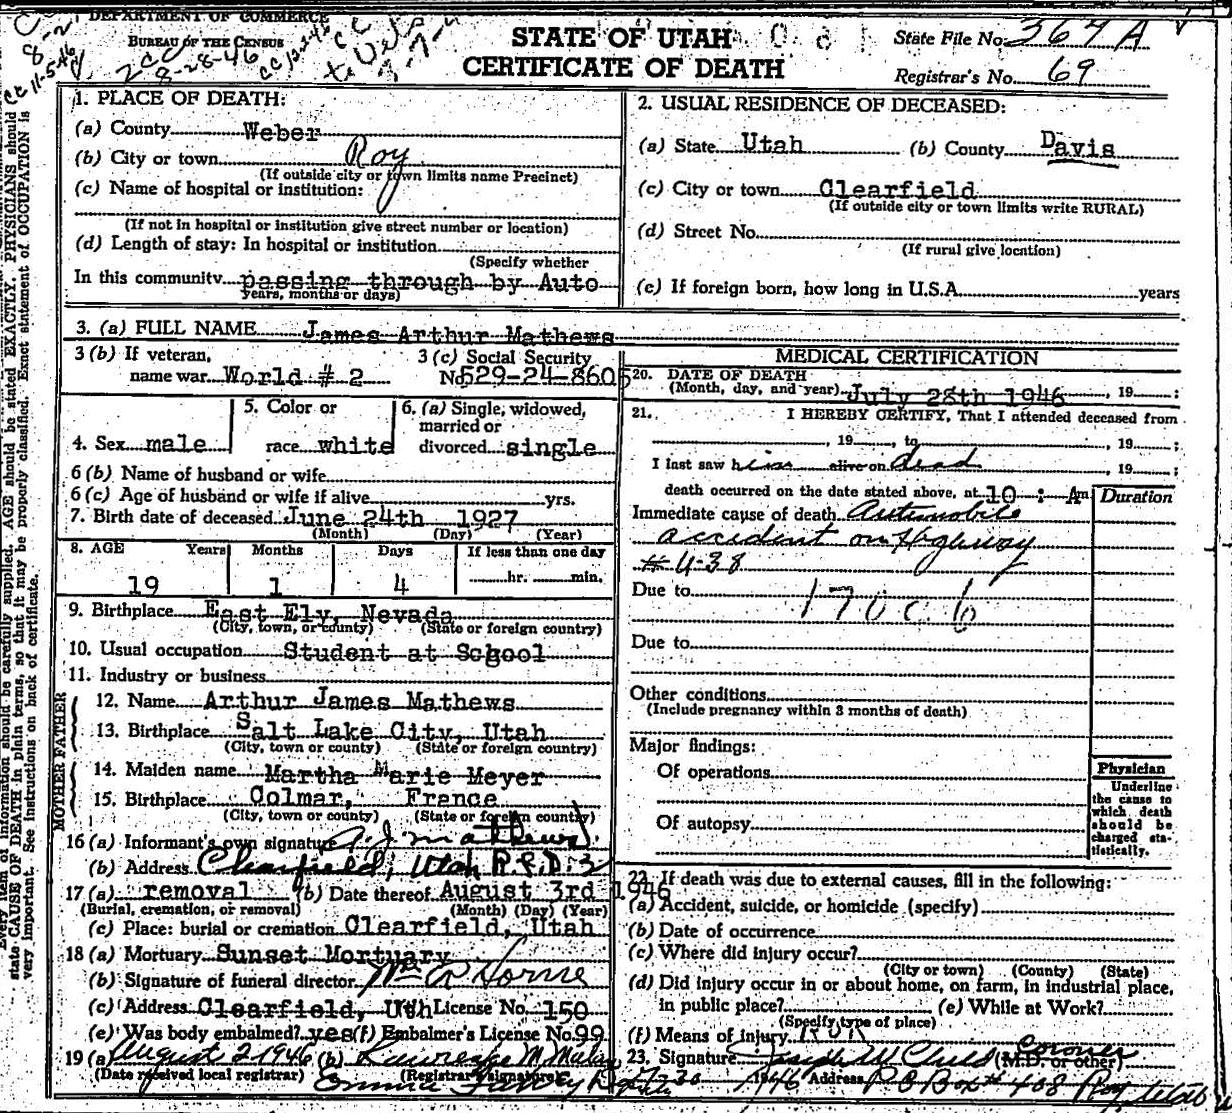 DEPARTMENT OF COMMERCE
BUREAU OF THE CENSUS
8-28-46
STATE OF UTAH
CERTIFICATE OF DEATH
State File No. 367 A
Registrar's No. 69
1. PLACE OF DEATH:
(a) County Weber
(b) City or town Roy
(If outside city or town limits name Precinct)
(c) Name of hospital or institution:
(If not in hospital or institution give street number or location)
(d) Length of stay: In hospital or institution
(Specify whether
In this community passing through by Auto
years, months or days)
2. USUAL RESIDENCE OF DECEASED:
(a) State Utah (b) County Davis
(c) City or town Clearfield
(If outside city or town limits write RURAL)
(d) Street No.
(If rural give location)
(e) If foreign born, how long in U.S.A. years
3. (a) FULL NAME James Arthur Mathews
3 (b) If veteran, name war World # 2
3 (c) Social Security No. 529-24-8605
4. Sex male
5. Color or race white
6. (a) Single, widowed, married or divorced single
6 (b) Name of husband or wife
6 (c) Age of husband or wife if alive yrs.
7. Birth date of deceased June 24th 1927
(Month) (Day) (Year)
8. AGE Years Months Days If less than one day
19 1 4 hr. min.
9. Birthplace East Ely, Nevada
(City, town, or county) (State or foreign country)
10. Usual occupation Student at School
11. Industry or business
FATHER
12. Name Arthur James Mathews
13. Birthplace Salt Lake City, Utah
(City, town or county) (State or foreign country)
MOTHER
14. Maiden name Martha Marie Meyer
15. Birthplace Colmar, France
(City, town or county) (State or foreign country)
16 (a) Informant's own signature A. J. Mathews
(b) Address Clearfield, Utah R.F.D. 2
17 (a) removal (b) Date thereof August 3rd 1946
(Burial, cremation, or removal) (Month) (Day) (Year)
(c) Place: burial or cremation Clearfield, Utah
18 (a) Mortuary Sunset Mortuary
(b) Signature of funeral director Wm A Horne
(c) Address Clearfield, Utah License No. 150
(e) Was body embalmed? yes (f) Embalmer's License No. 99
19 (a) August 2 1946 (b)
(Date received local registrar) (Registrar's signature)
MEDICAL CERTIFICATION
20. DATE OF DEATH
(Month, day, and year) July 28th 1946, 19 ;
21. I HEREBY CERTIFY, That I attended deceased from
, 19 , to , 19 ;
I last saw him alive on dead , 19 ;
death occurred on the date stated above, at 10 : A m
Duration
Immediate cause of death Automobile
accident on Highway
# U-38
Due to 170c b
Due to
Other conditions
(Include pregnancy within 3 months of death)
Major findings:
Of operations
Of autopsy
Physician
Underline
the cause to
which death
should be
charged sta-
tistically.
22. If death was due to external causes, fill in the following:
(a) Accident, suicide, or homicide (specify)
(b) Date of occurrence
(c) Where did injury occur?
(City or town) (County) (State)
(d) Did injury occur in or about home, on farm, in industrial place,
in public place? (e) While at Work?
(Specify type of place)
(f) Means of injury
23. Signature Joseph W Child Coroner (M.D. or other)
1946 Address P O Box # 408 Roy Utah
state CAUSE OF DEATH in plain terms, so that it may be properly classified. Exact statement of OCCUPATION is
very important. See instructions on back of certificate.